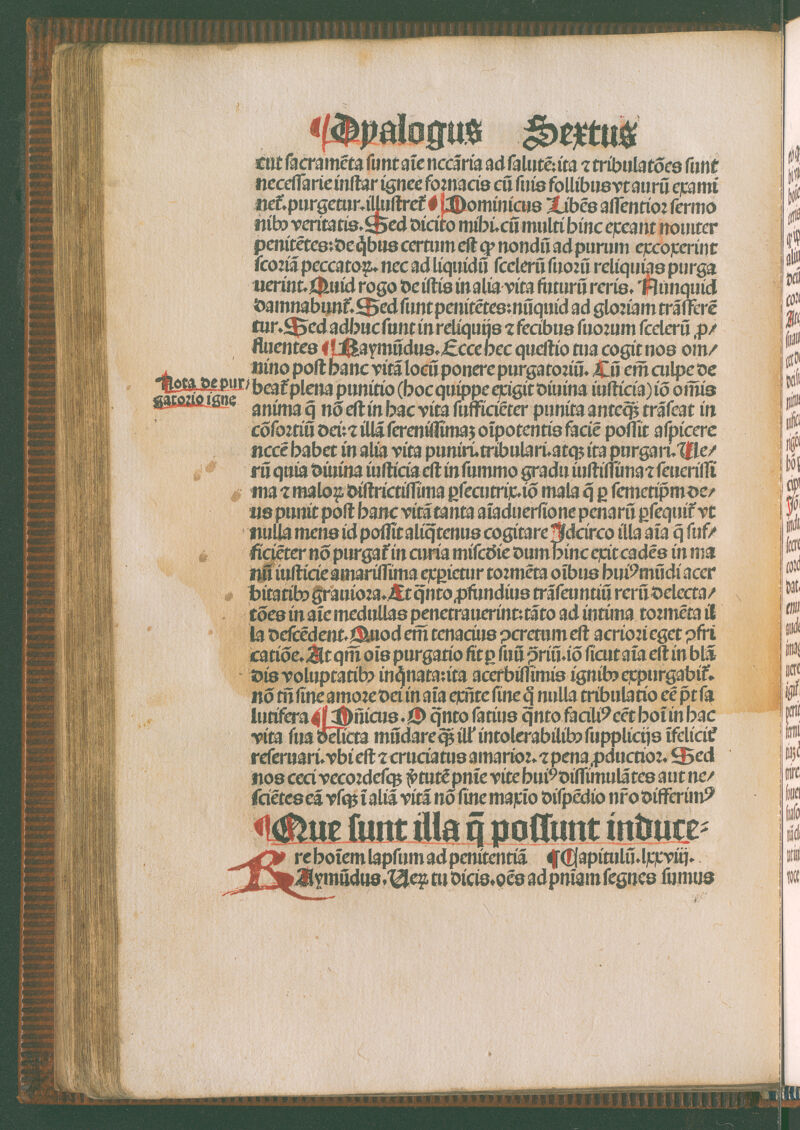 ¶ Dyalogus Sextus
cut sacramēta sunt aīe nccāria ad salutē: ita ⁊ tribulatōes sunt
necessarie instar ignee fornacis cū suis follibus vt aurū exami
net᷑. purgetur. illustret᷑ ¶ Dominicus Libēs assentior sermo
nibꝫ veritatis. Sed dicito mihi. cū multi hinc exeant nouiter
penitētes: de q̇bus certum est ꝙ nondū ad purum excoxerint
scoriā peccatoꝝ. nec ad liquidū scelerū suorū reliquias purga
uerint. Quid rogo de istis in alia vita futurū reris. Nunquid
damnabunt᷑. Sed sunt penitētes: nūquid ad gloriam trāsferē
tur. Sed adhuc sunt in reliquijs ⁊ fecibus suorum scelerū ꝓ/
fluentes ¶ Raymūdus. Ecce hec questio tua cogit nos om/
nino post hanc vitā locū ponere purgatoriū. Cū em̄ culpe de
Nota de pur/
gatorio igne
beat᷑ plena punitio (hoc quippe exigit diuina iusticia) iō om̄is
anima q̄ nō est in hac vita sufficiēter punita anteqꝫ trāseat in
cōsortiū dei: ⁊ illā serenissimaꝫ oīpotentis faciē possit aspicere
nccē habet in alia vita puniri. tribulari. atqꝫ ita purgari. Ue/
rū quia diuina iusticia est in summo gradu iustissima ⁊ seuerissi
ma ⁊ maloꝝ districtissima ꝑsecutrix. iō mala q̄ ꝑ semetip̄m de/
us punit post hanc vitā tanta aīaduersione penarū ꝑsequit᷑ vt
nulla mens id possit aliq̄tenus cogitare Idcirco illa aīa q̄ suf/
ficiēter nō purgat᷑ in curia mīscdie dum hinc exit cadēs in ma
nū iusticie amarissima exꝑietur tormēta oībus huiꝰ mūdi acer
bitatibꝫ grauiora. Et q̄nto ꝓfundius trāseuntiū rerū delecta/
tōes in aīe medullas penetrauerint: tāto ad intima tormēta il
la descēdent. Quod em̄ tenacius ꝯcretum est acriori eget ꝯfri
catiōe. At qm̄ oīs purgatio fit ꝑ suū ꝯ̄riū. iō sicut aīa est in blā
dis voluptatibꝫ inq̇nata: ita acerbissimis ignibꝫ expurgabit᷑.
nō tn̄ sine amore dei in aīa exn̄te sine q̊ nulla tribulatio eē pt̄ sa
lutifera ¶ Dn̄icus. O q̄nto satius q̄nto faciliꝰ eēt hoī in hac
vita sua delicta mūdare qꝫ ill᷑ intolerabilibꝫ supplicijs īfelicit᷑
reseruari. vbi est ⁊ cruciatus amarior. ⁊ pena ꝓductior. Sed
nos ceci vecordesqꝫ v̓tutē pnīe vite huiꝰ dissimulātes aut ne/
sciētes eā vsqꝫ ī aliā vitā nō sine maxīo dispēdio nr̄o differimꝰ
¶ Que sunt illa q̄ possunt induce-
re hoīem lapsum ad penitentiā ¶ Capitulū. lxxviij.
RAymūdus. Ueꝝ tu dicis. oēs ad pnīam segnes sumus